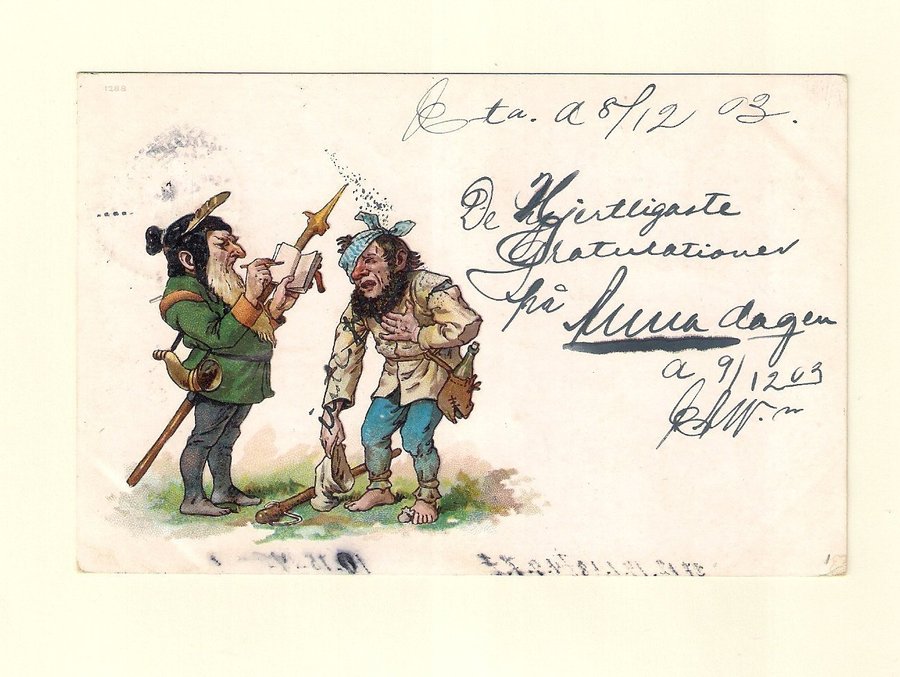 1288
Eta. d 8/12 03.
De Hjertligaste
Gratulationer
på Anna dagen
d 9/12 03